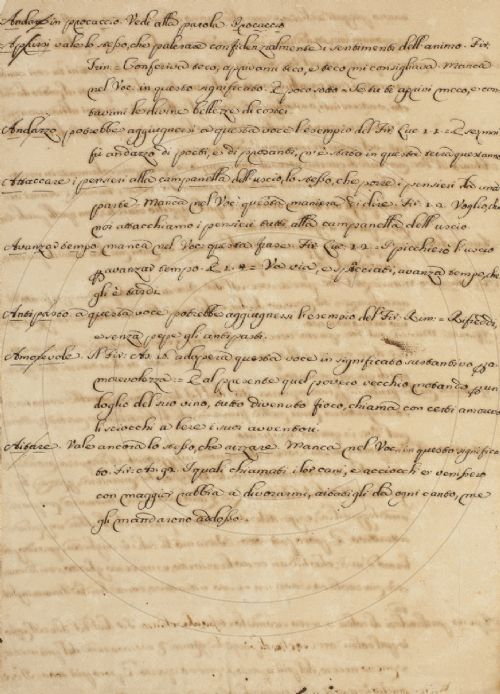 Andare in procaccio. Vedi alla parola Procaccio
Aprirsi vale lo stesso, che palesare confidenzialmente i sentimenti dell'animo. Fir.
Trin. = Conferiva teco, aprivami teco, e teco mi consigliava. Manca
nel Voc. in questo significato. E poco sotto = Se tu te aprivi meco, e con
tavami le divine bellezze di costei
Andazzo potrebbe aggiugnersi a questa voce l'esempio del Fir. Luc. 1. 1. = E se mai
fù andazzo di poeti, e di prosanti, n'è stato in questa terra quest'anno
Attaccare i pensieri alla campanella dell'uscio, lo stesso, che porre i pensieri da una
parte. Manca nel Voc. questa maniera di dire. Fir. 1. 2. Voglio, che
noi attacchiamo i pensieri tutti alla campanella dell'uscio
Avanzar tempo manca nel Voc. questa frase. Fir. Luc. 1. 2. = I picchierò l'uscio
per avanzar tempo. E 1. 4. = Va via, e spacciati, avanza tempo, che
gli è tardi.
Antipasto a questa voce potrebbe aggiugnersi l'esempio del Fir. Rim. =
e senza pepe gli antipasti.
Amorevole. Il Fir. As. 18. adopera questa voce in significato sustantivo per a
morevolezza = E al presente quel povero vecchio notando per lo
doglio del suo vino, tutto divenuto fioco, chiama con certi amorevo
li sciocchi a bere i suoi avventori.
Aitare. Vale ancora lo stesso, che aizzare. Manca nel Voc. in questo significa
to. Fir. As. 92. I quali chiamati i lor cani, e acciocchè e' venissero
con maggior rabbia a divorarmi, aitatigli da ogni canto, me
gli mandarono addosso.